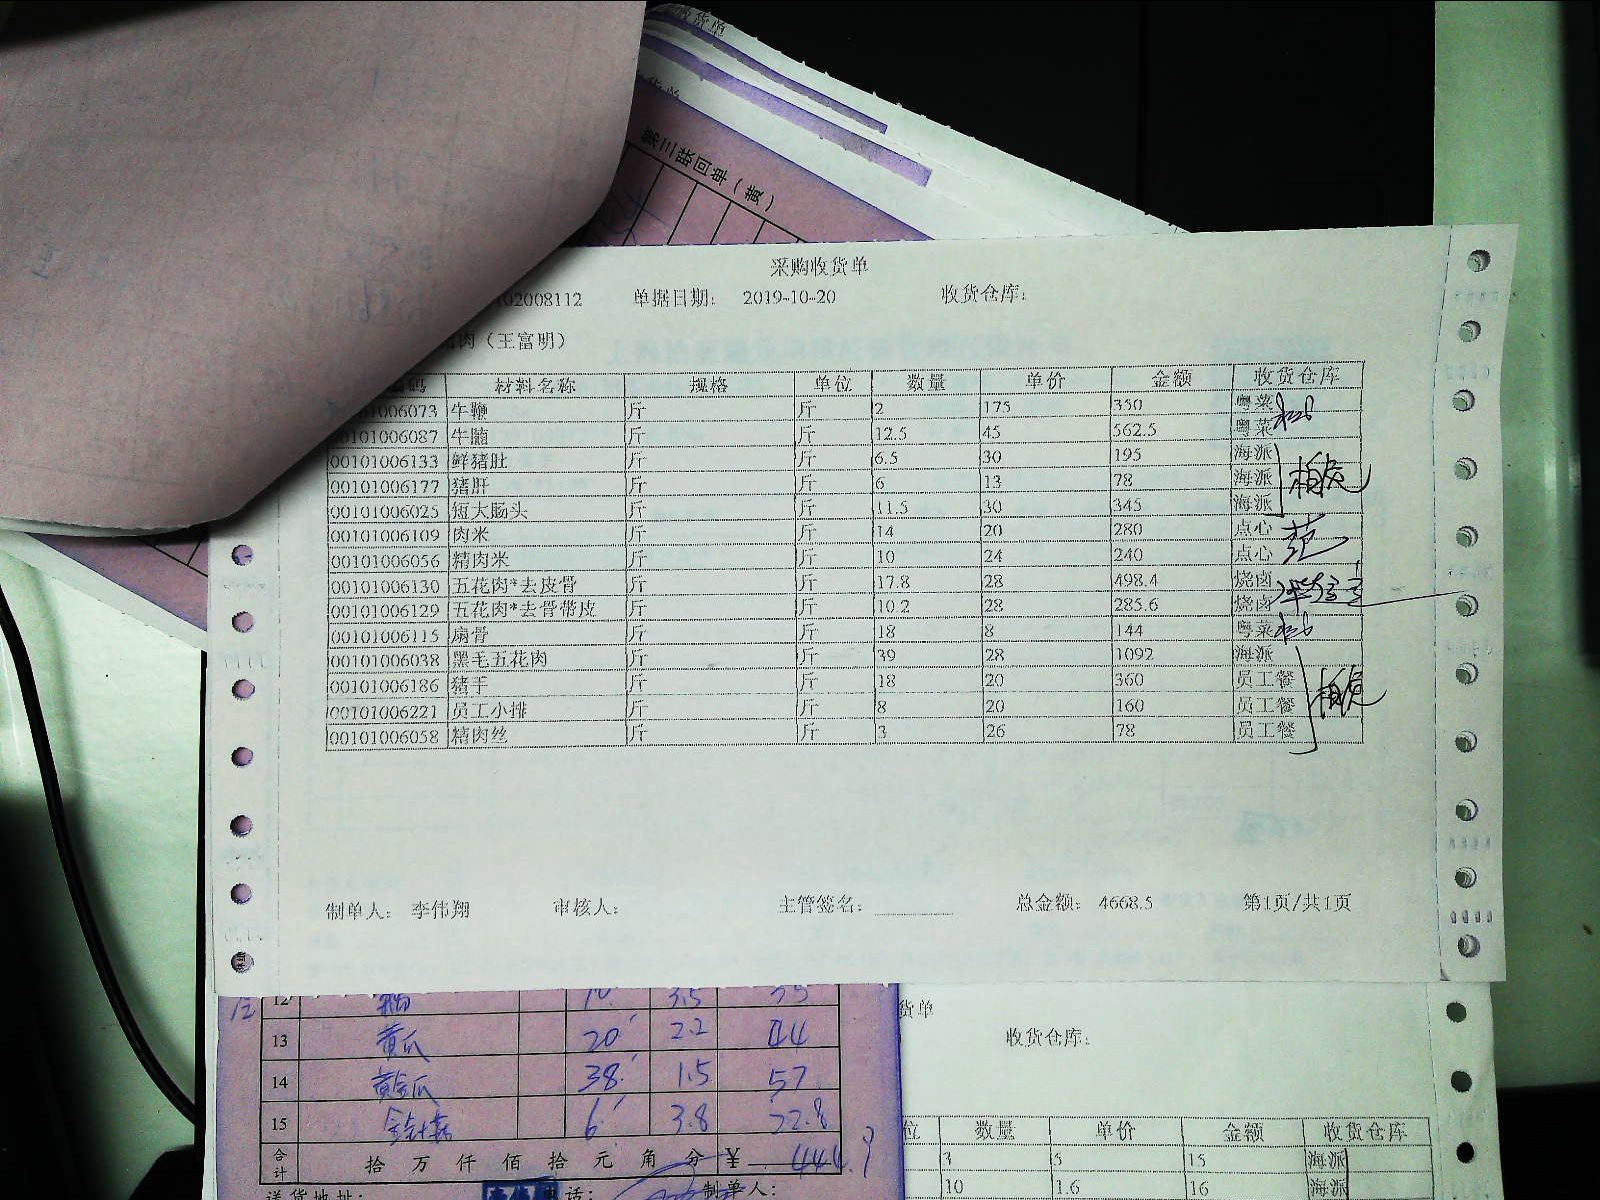 第三联回单（黄）
采购收货单
02008112 单据日期： 2019-10-20 收货仓库：
肉（王富明）
码 材料名称 规格 单位 数量 单价 金额 收货仓库
01006073 牛鞭 斤 斤 2 175 350 粤菜
00101006087 牛腩 斤 斤 12.5 45 562.5 粤菜
00101006133 鲜猪肚 斤 斤 6.5 30 195 海派
00101006177 猪肝 斤 斤 6 13 78 海派
00101006025 短大肠头 斤 斤 11.5 30 345 海派
00101006109 肉米 斤 斤 14 20 280 点心
00101006056 精肉米 斤 斤 10 24 240 点心
00101006130 五花肉*去皮骨 斤 斤 17.8 28 498.4 烧卤
00101006129 五花肉*去骨带皮 斤 斤 10.2 28 285.6 烧卤
00101006115 扇骨 斤 斤 18 8 144 粤菜
00101006038 黑毛五花肉 斤 斤 39 28 1092 海派
00101006186 猪手 斤 斤 18 20 360 员工餐
00101006221 员工小排 斤 斤 8 20 160 员工餐
00101006058 精肉丝 斤 斤 3 26 78 员工餐
制单人： 李伟翔 审核人： 主管签名： 总金额： 4668.5 第1页/共1页
12 3.5 35
13 黄瓜 20 2.2 44
14 黄金瓜 38 1.5 57
15 6 3.8 22.8
合计 拾 万 仟 佰 拾 元 角 分 ￥ 444.9
送货地址： 电话： 制单人：
货单
收货仓库：
位 数量 单价 金额 收货仓库
3 5 15 海派
10 1.6 16 海派